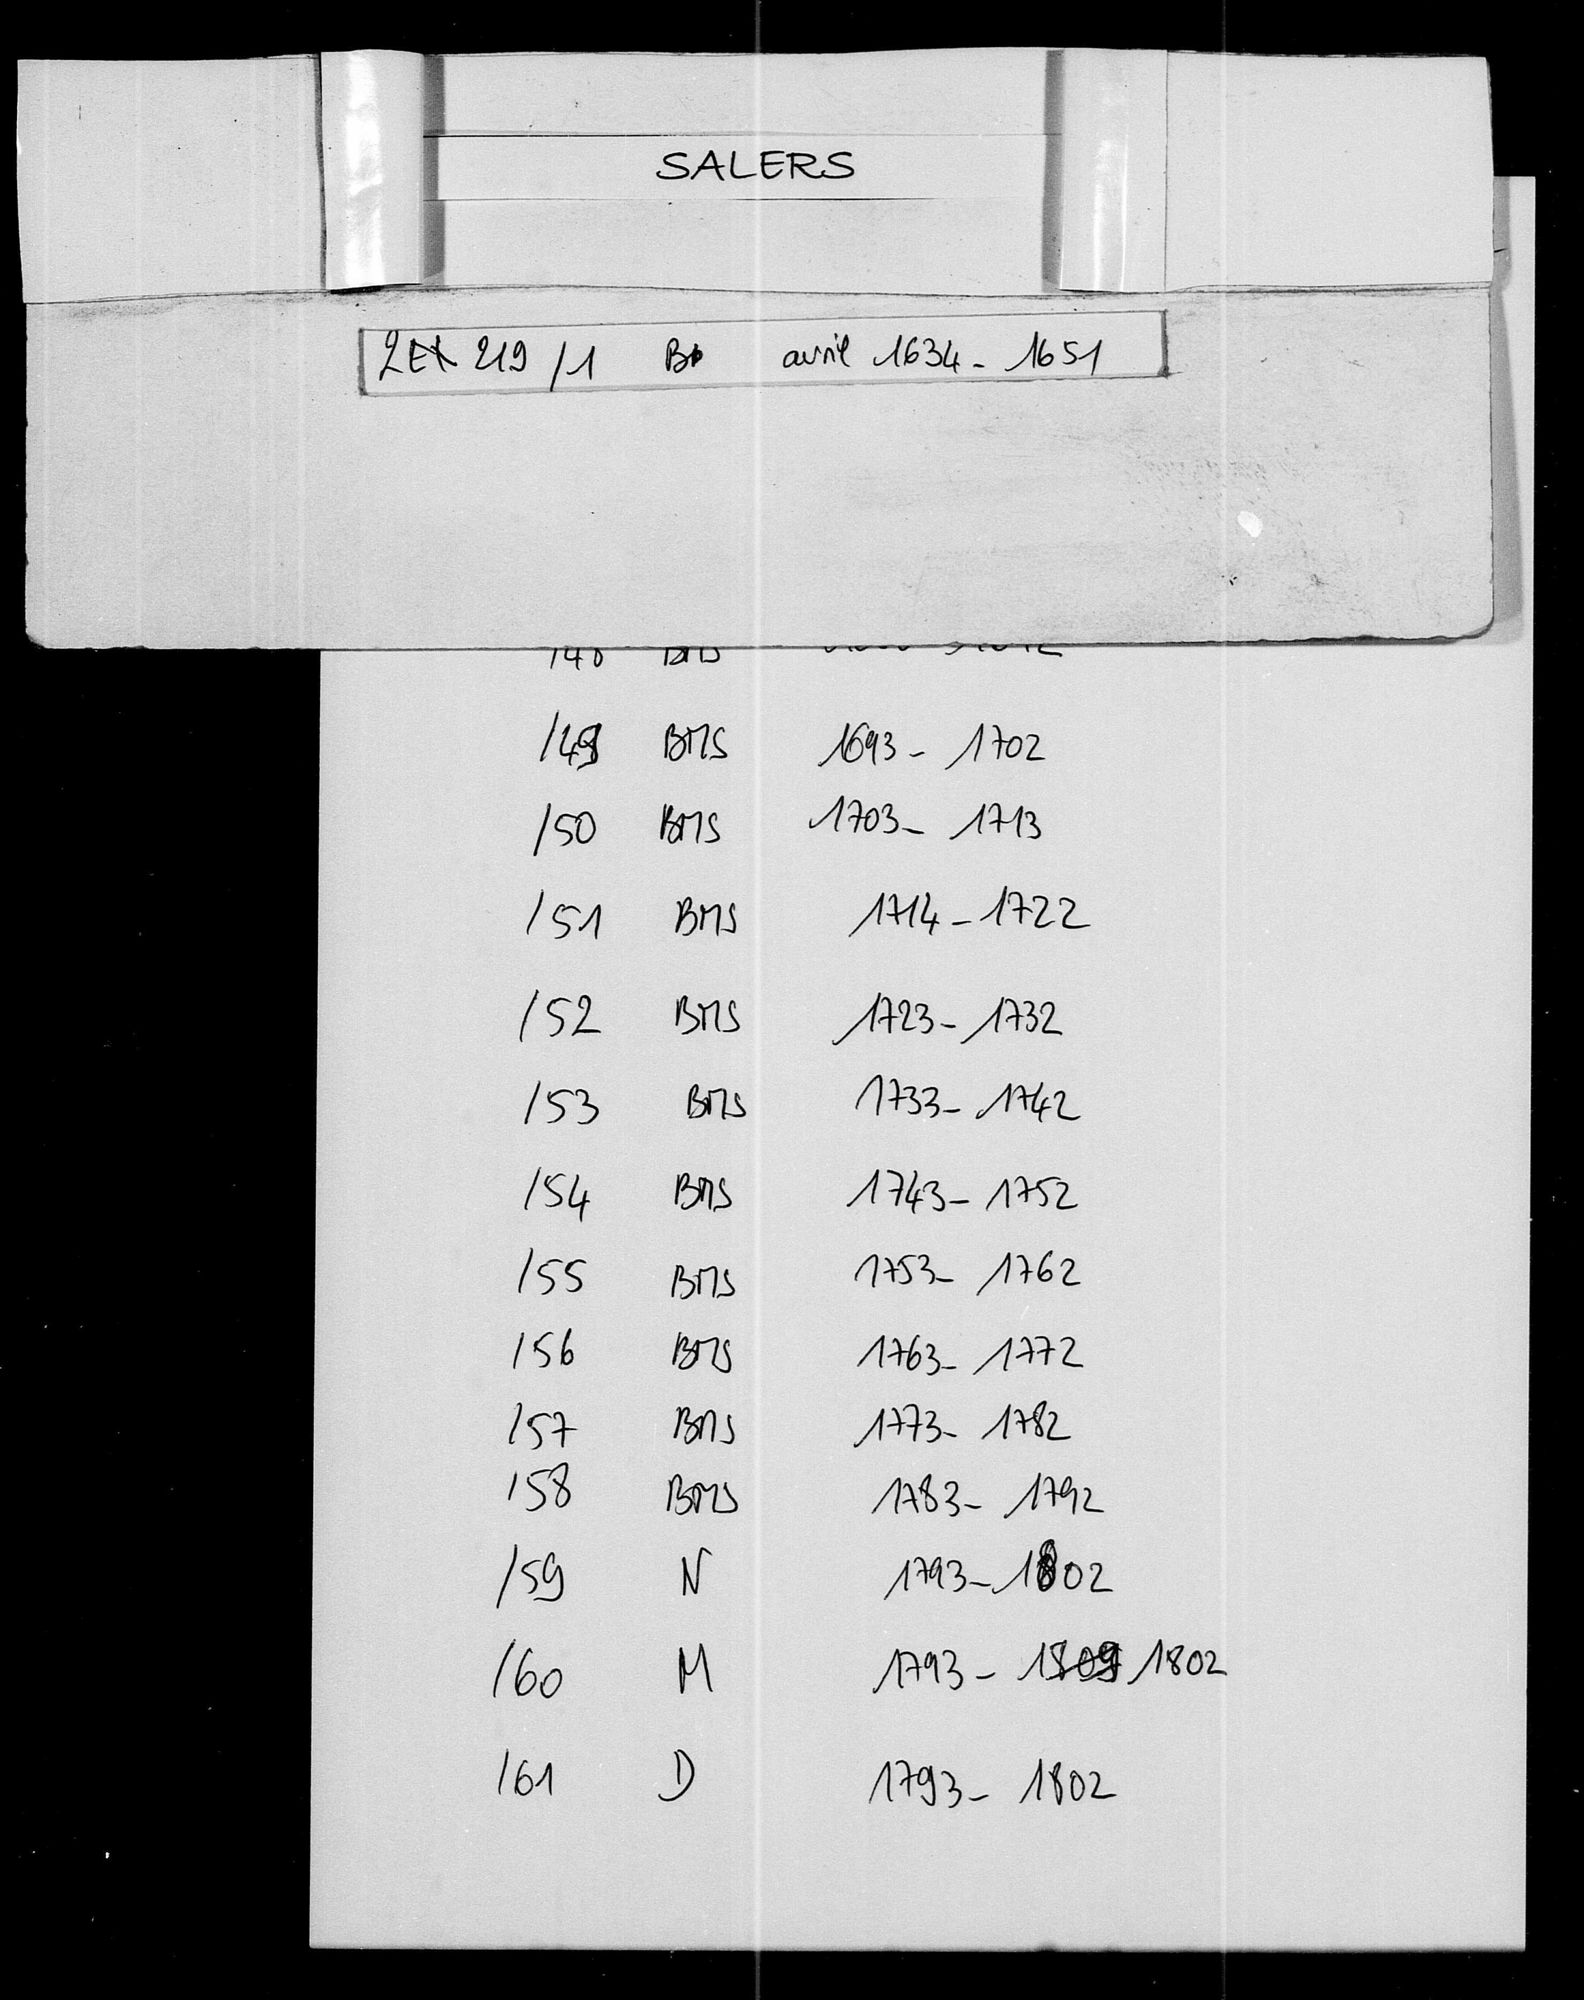 SALERS
219 /1 avril 1634 - 1651
BMS
/49 BMS 1693 - 1702
/50 BMS 1703 - 1713
/51 BMS 1714 - 1722
/52 BMS 1723 - 1732
/53 BMS 1733 - 1742
/54 BMS 1743 - 1752
/55 BMS 1753 - 1762
/56 BMS 1763 - 1772
/57 BMS 1773 - 1782
/58 BMS 1783 - 1792
/59 N 1793 - 1802
/60 M 1793 - 1802
/61 D 1793 - 1802